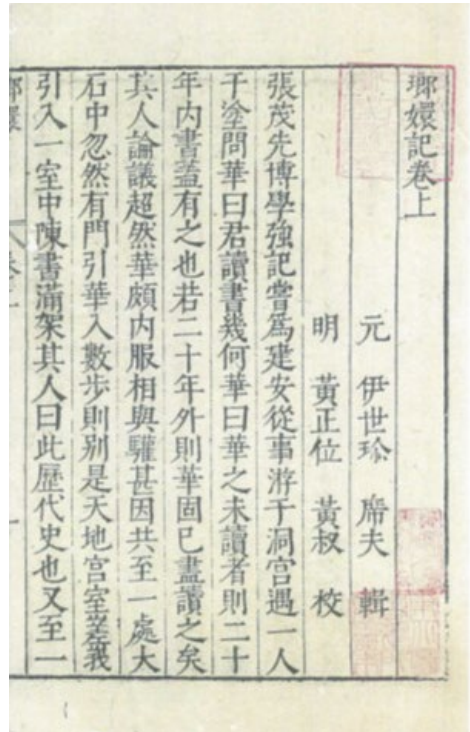 瑯嬛記卷上
元　伊世珍　席夫　輯
明　黃正位　黃叔　校
張茂先博學強記嘗爲建安從事游于洞宮遇一人
于塗問華曰君讀書幾何華曰華之未讀者則二十
年內書葢有之也若二十年外則華固已盡讀之矣
其人論議超然華頗內服相與驩甚因共至一處大
石中忽然有門引華入數步則別是天地宮室嵳峩
引入一室中陳書滿架其人曰此歷代史也又至一